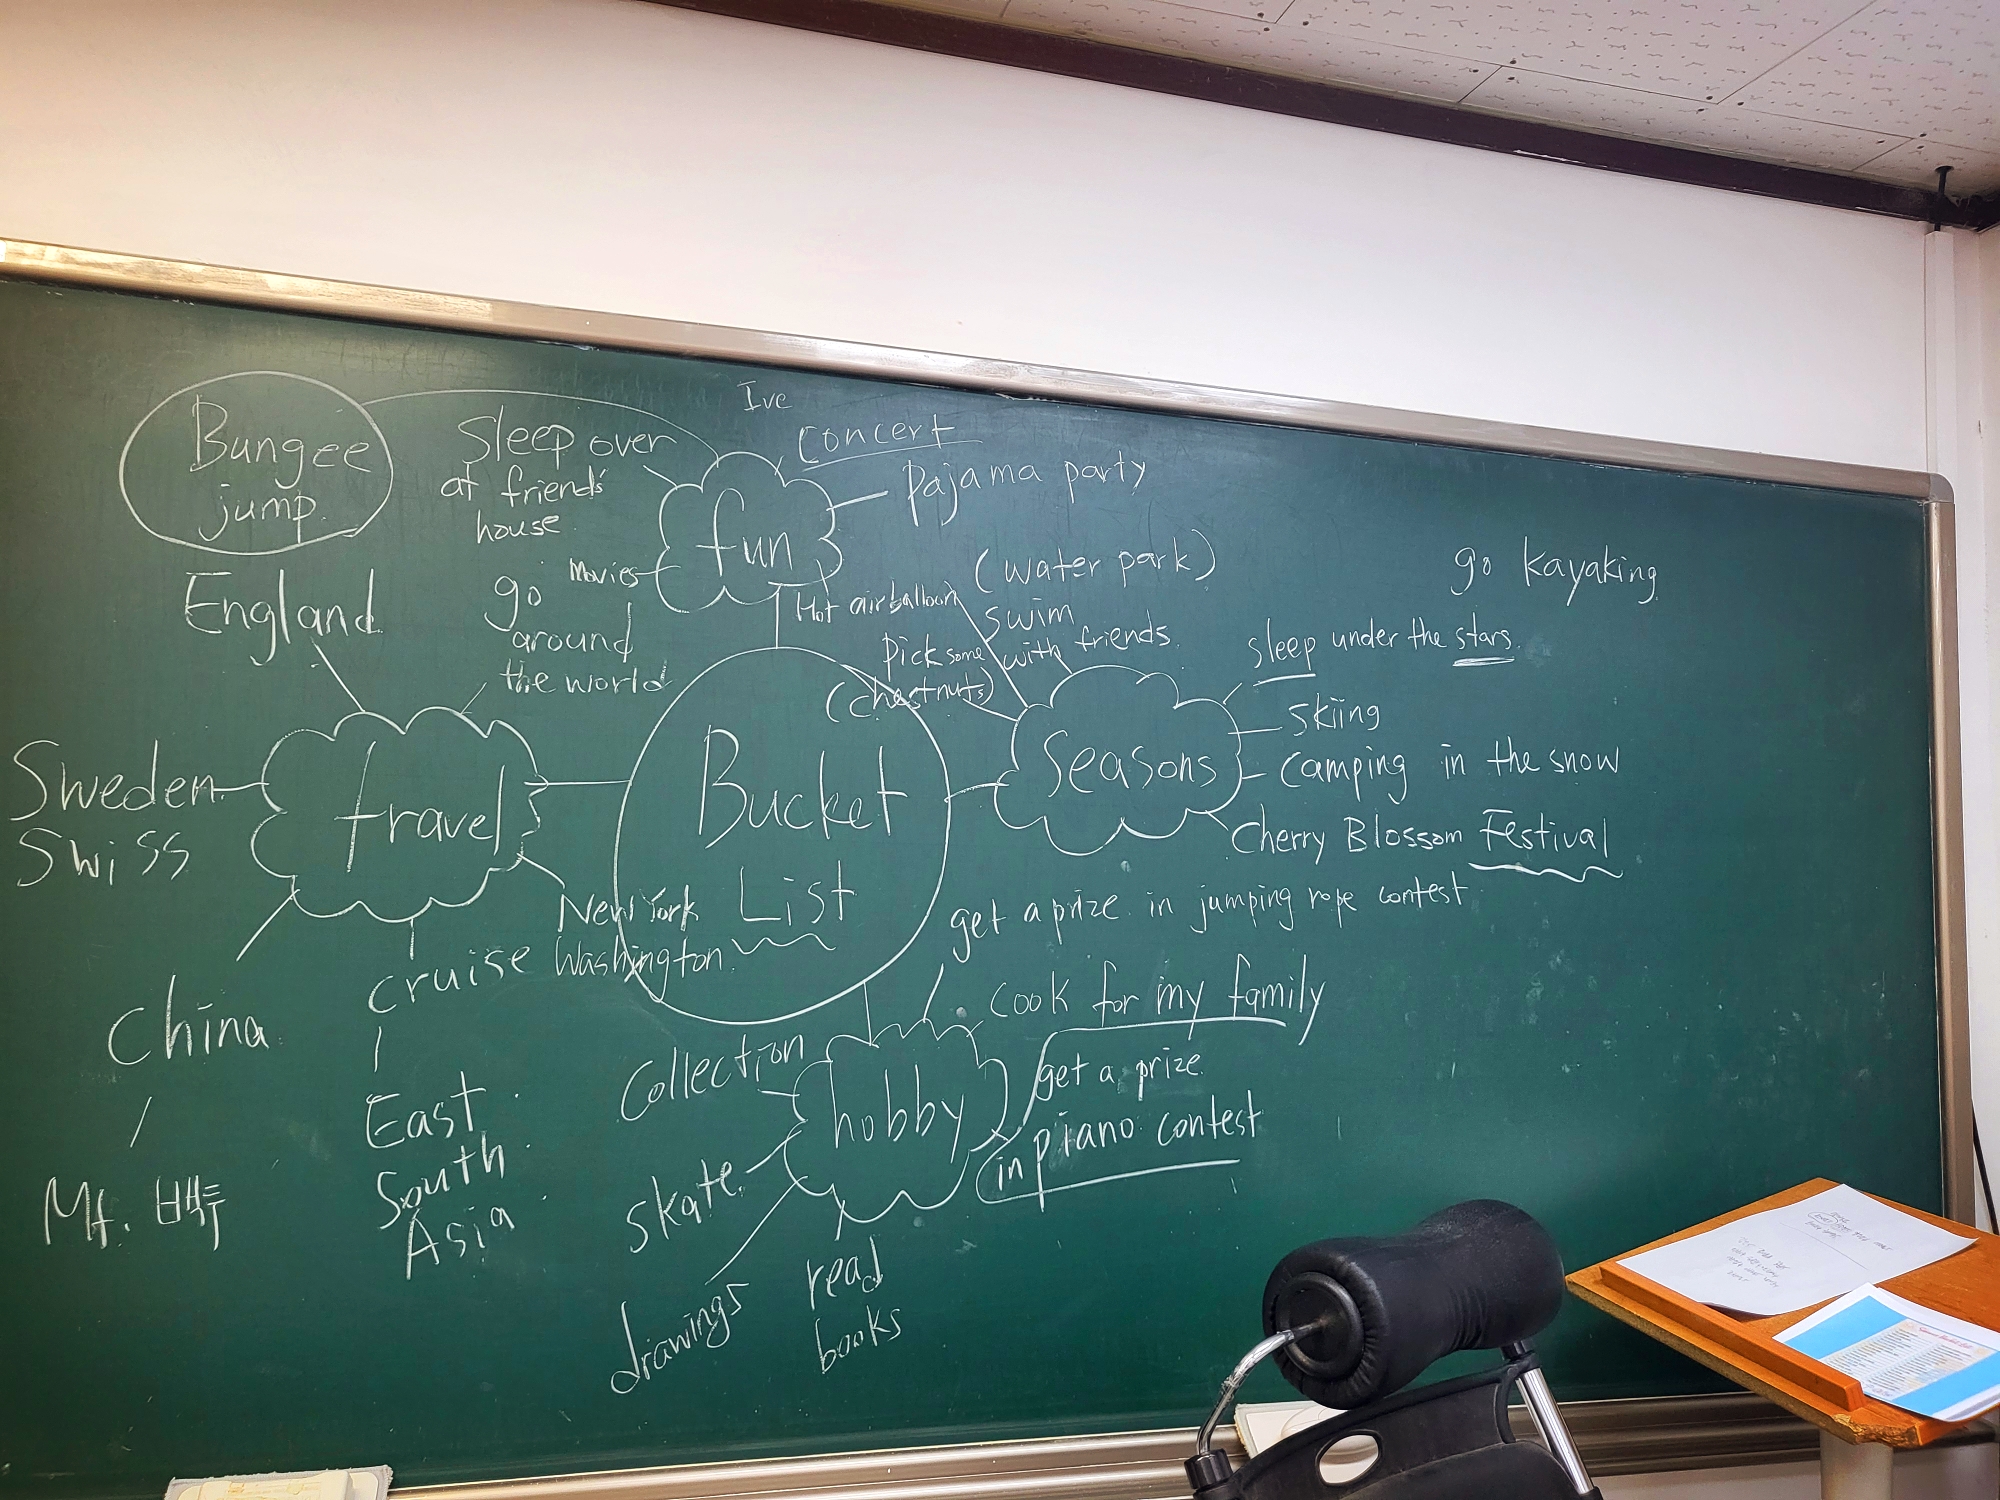 Bungee
jump.
Sleep over
at friend's
house.
Ive
concert
Pajama party
fun
Movies
England
go
around
the world
Hot air balloon
(water park)
swim
with friends.
Pick some
(chestnuts)
go kayaking
sleep under the stars.
Skiing
Camping in the snow
Cherry Blossom Festival
Seasons
Sweden
Swiss
travel
Bucket
List
New York
Washington.
cruise
East
South
Asia
China
Mt. 백두
get a prize in jumping rope contest
cook for my family
get a prize
in piano contest
hobby
Collection
skate
drawings
read
books